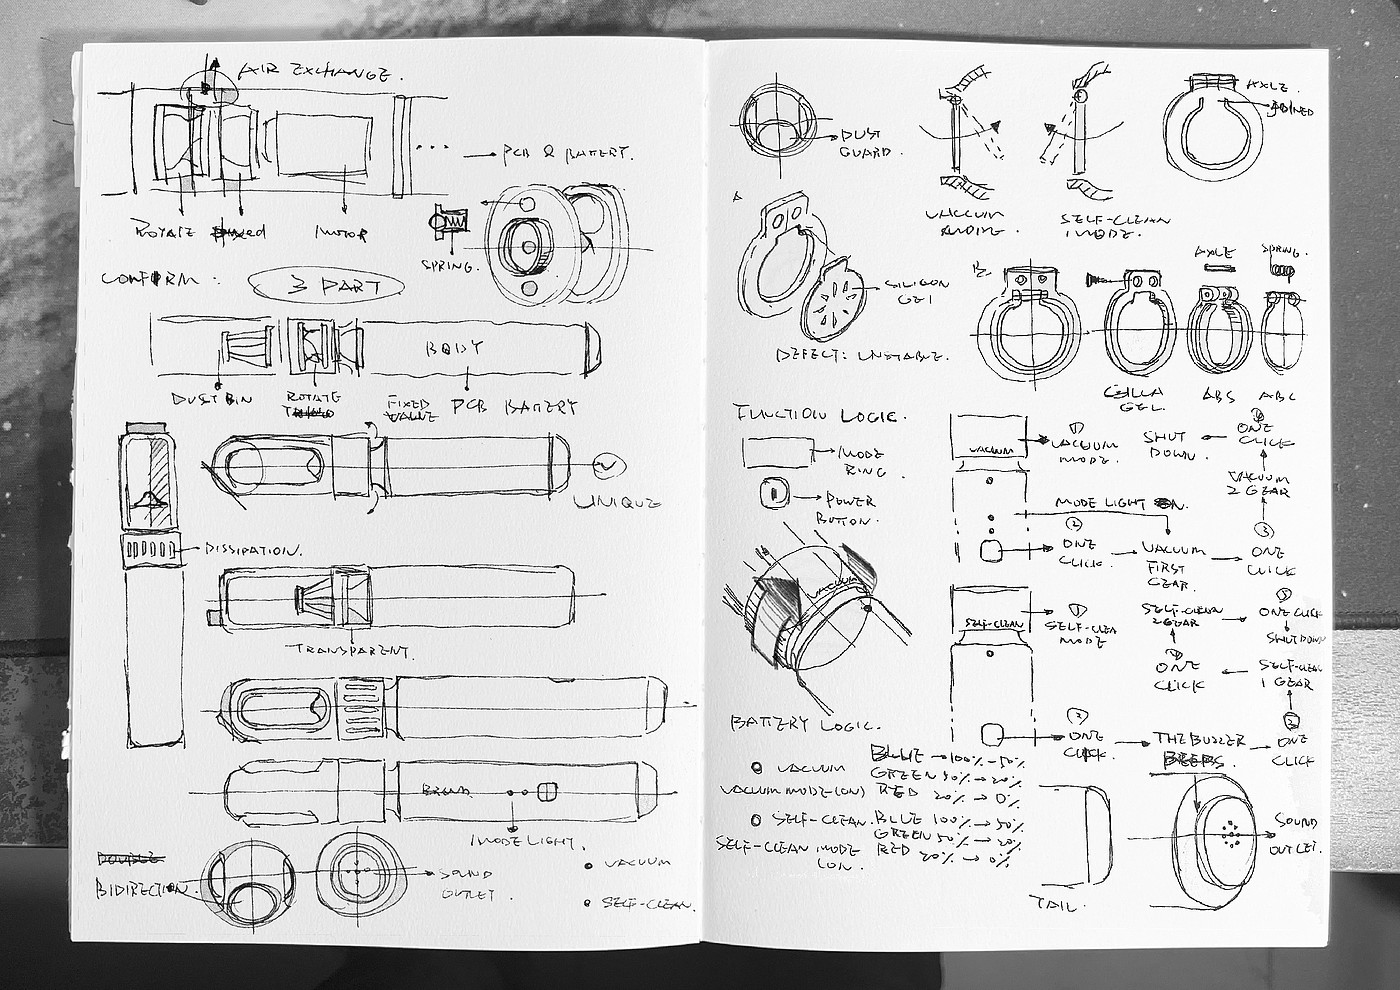 AIR EXCHANGE.
PCB & BATTERY.
ROTATE
MOTOR
SPRING.
CONFIRM:
3 PART
BODY
DUST BIN
ROTATE
FIXED
VALVE
PCB BATTERY
UNIQUE
DISSIPATION.
TRANSPARENT.
MODE LIGHT.
DOUBLE
BIDIRECTION.
SOUND
OUTLET.
VACUUM
SELF-CLEAN.
DUST
GUARD.
VACUUM
MODE.
SELF-CLEAN
MODE.
AXLE.
JOINED
A
SILICON
GEL
DEFECT: UNSTABLE.
B.
AXLE
SPRING.
GEL.
ABS
ABC
FUNCTION LOGIC.
MODE
RING.
POWER
BUTTON.
VACUUM
VACUUM
①
VACUUM
MODE.
SHUT
DOWN.
④
ONE
CLICK
VACUUM
2 GEAR
MODE LIGHT ON.
②
ONE
CLICK.
VACUUM
FIRST
GEAR.
③
ONE
CLICK
SELF-CLEAN
①
SELF-CLEA
MODE
SELF-CLEAN
2 GEAR
⑤
ONE CLICK
SHUT DOWN
④
ONE
CLICK
SELF-CLEAN
1 GEAR
②
ONE
CLICK
THE BUZZER
BEEPS.
③
ONE
CLICK
BATTERY LOGIC.
VACUUM
VACUUM MODE (ON)
BLUE → 100% - 50%
GREEN 50% → 20%
RED 20% → 0%
SELF-CLEAN.
SELF-CLEAN MODE
(ON.
BLUE 100% → 50%
GREEN 50% → 20%
RED 20% → 0%
TAIL.
SOUND
OUTLET.